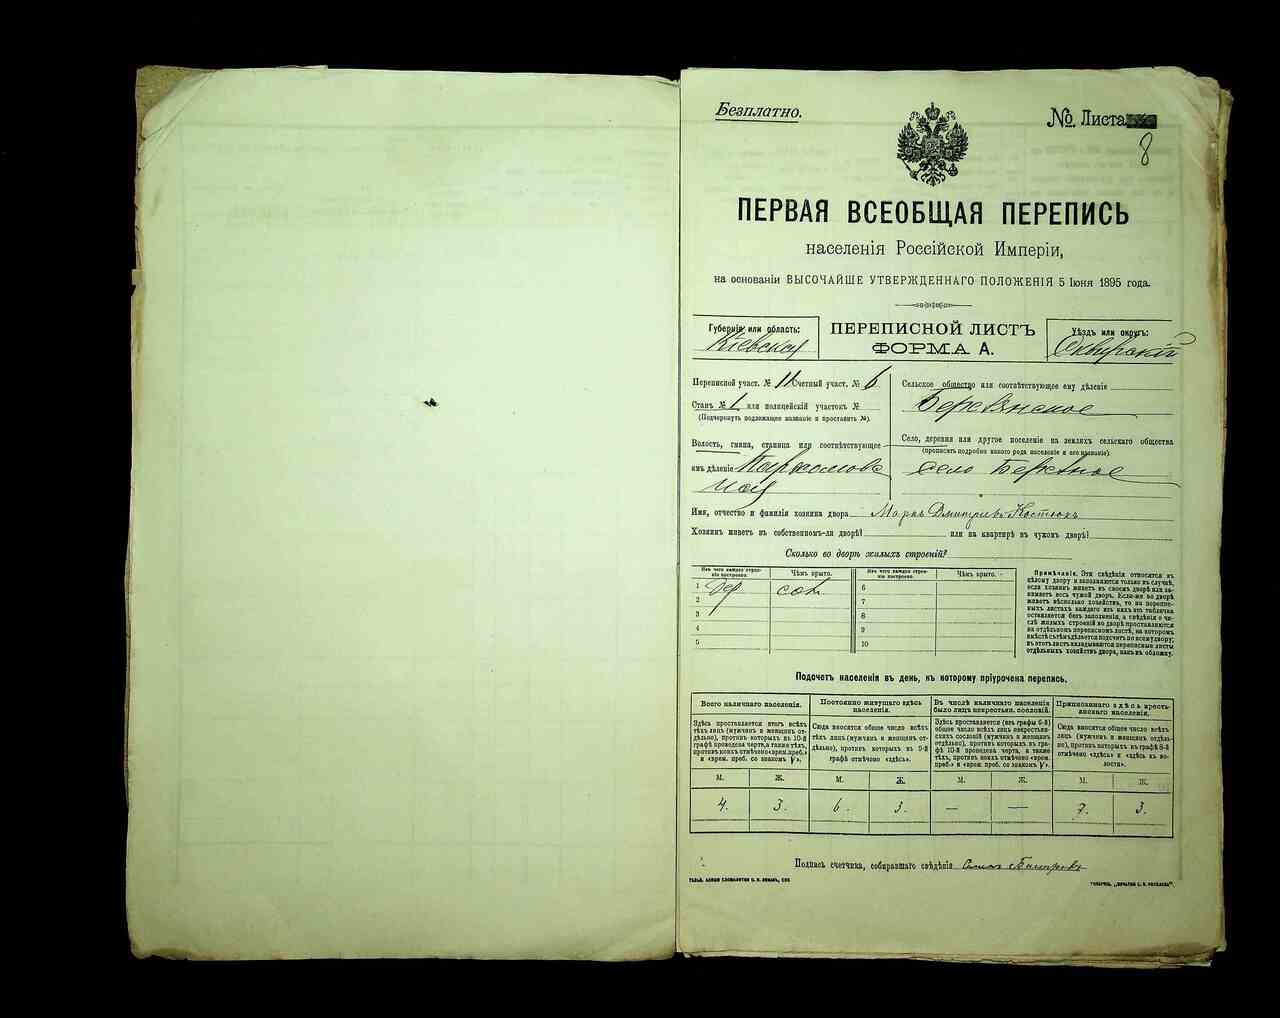 Безплатно.
№ Листа
8
ПЕРВАЯ ВСЕОБЩАЯ ПЕРЕПИСЬ
населенія Россійской Имперіи,
на основаніи ВЫСОЧАЙШЕ УТВЕРЖДЕННАГО ПОЛОЖЕНІЯ 5 Іюня 1895 года.
Губернія или область:
Кіевская
ПЕРЕПИСНОЙ ЛИСТЪ
ФОРМА А.
Уѣздъ или округъ:
Сквирскій
Переписной участ. № 11 Счетный участ. № 6
Станъ № 1 или полицейскій участокъ №
(Подчеркнуть подлежащее названіе и проставить №).
Волость, гмина, станица или соотвѣтствующее
имъ дѣленіе
Сельское общество или соотвѣтствующее ему дѣленіе
Село, деревня или другое поселеніе на земляхъ сельскаго общества
(прописать подробно какого рода населеніе и его названіе).
село
Имя, отчество и фамилія хозяина двора Марко Дмитріевъ Костюкъ
Хозяинъ живетъ въ собственномъ-ли дворѣ? или на квартирѣ въ чужомъ дворѣ?
Сколько во дворѣ жилыхъ строеній?
Изъ чего каждое строеніе построено.
Чѣмъ крыто.
Изъ чего каждое строеніе построено.
Чѣмъ крыто.
1 дер сол. 6
2 7
3 8
4 9
5 10
Примѣчаніе. Эти свѣдѣнія относятся къ
цѣлому двору и заполняются только въ случаѣ,
если хозяинъ живетъ въ своемъ дворѣ или занимаетъ
весь чужой дворъ. Если-же во дворѣ
живетъ нѣсколько хозяйствъ, то на переписныхъ
листахъ каждаго изъ нихъ эта табличка
оставляется безъ заполненія, а свѣдѣнія о числѣ
жилыхъ строеній во дворѣ проставляются
на отдѣльномъ переписномъ листѣ, на которомъ
вмѣстѣ съ тѣмъ дѣлается подсчетъ по всему двору;
въ этотъ листъ вкладываются переписные листы
отдѣльныхъ хозяйствъ двора, какъ въ обложку.
Подсчетъ населенія въ день, къ которому пріурочена перепись.
Всего наличнаго населенія.
Здѣсь проставляется итогъ всѣхъ
тѣхъ лицъ (мужчинъ и женщинъ отдѣльно),
противъ которыхъ въ 10-й
графѣ проведена черта, а также тѣхъ,
противъ коихъ отмѣчено «врем. преб.»
и «врем. преб. со знакомъ V».
Постоянно живущаго здѣсь
населенія.
Сюда вносится общее число всѣхъ
тѣхъ лицъ (мужчинъ и женщинъ отдѣльно),
противъ которыхъ въ 9-й
графѣ отмѣчено «здѣсь».
Въ числѣ наличнаго населенія
было лицъ некрестьян. сословій.
Здѣсь проставляется (изъ графы 6-й)
общее число всѣхъ лицъ некрестьянскихъ
сословій (мужчинъ и женщинъ
отдѣльно), противъ которыхъ въ графѣ
10-й проведена черта, а также
тѣхъ, противъ коихъ отмѣчено «врем.
преб.» и «врем. преб. со знакомъ V».
Приписаннаго здѣсь крестьянскаго
населенія.
Сюда вносится общее число всѣхъ
лицъ (мужчинъ и женщинъ отдѣльно),
противъ которыхъ въ графѣ 8-й
отмѣчено «здѣсь» и «здѣсь къ волости».
М. Ж. М. Ж. М. Ж. М. Ж.
4. 3. 6. 3. — — 7. 3.
Подпись счетчика, собиравшаго свѣдѣнія